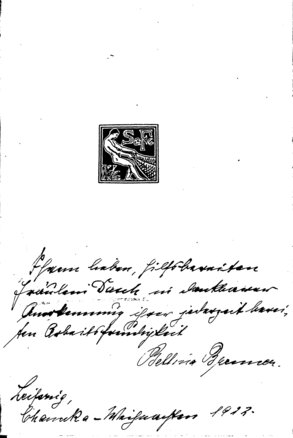 Ihrem lieben, hilfsbereiten
Fräulein in dankbarer
Anerkennung ihrer jederzeit berei-
ten Arbeitsfreudigkeit
Leipzig,
Chanuka - Weihnachten 1922.